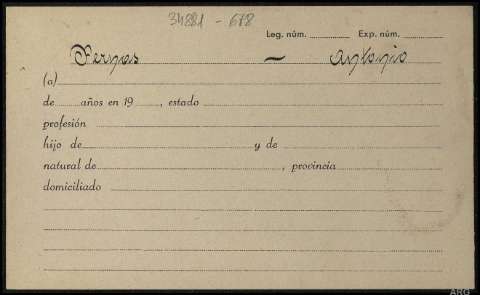 34881 - 678
Leg. núm. Exp. núm.
Fernos — Antonio
(a)
de años en 19 , estado
profesión
hijo de y de
natural de , provincia
domiciliado
ARG